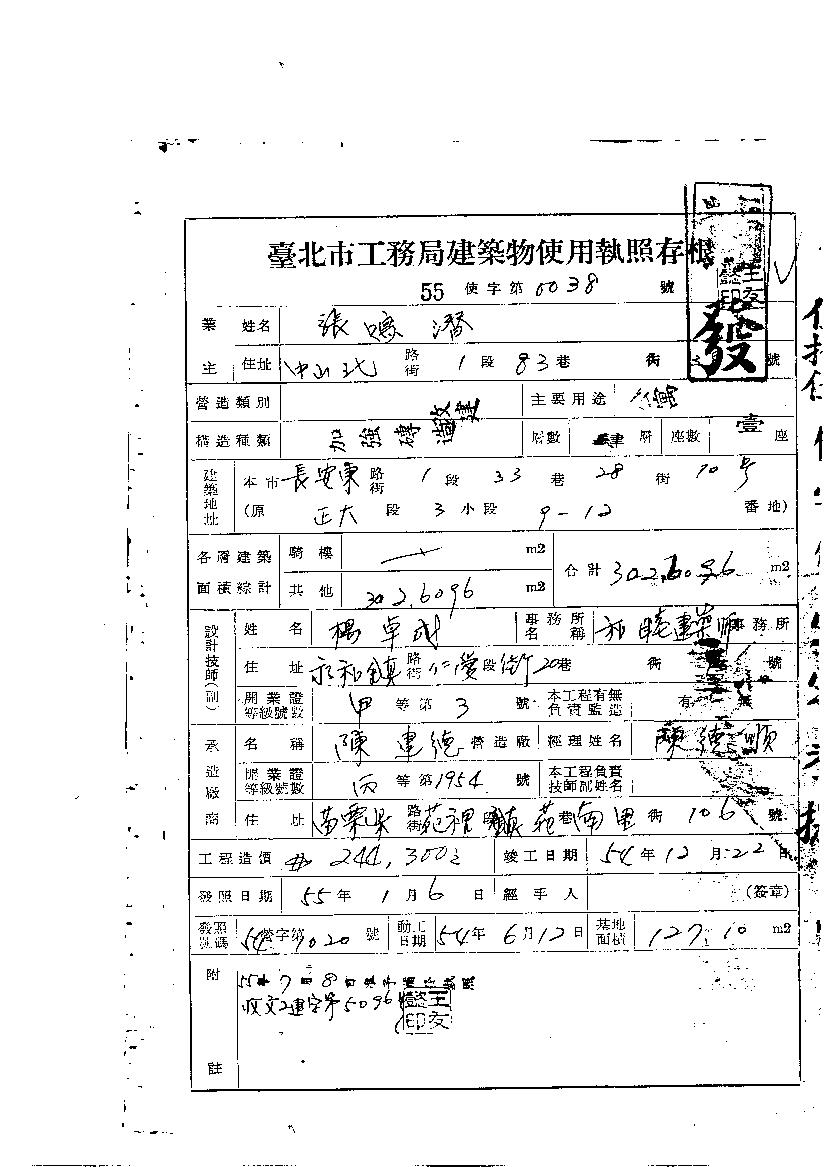 臺北市工務局建築物使用執照存根
55 使字第 0038 號
業主 姓名 張 潛
住址 中山北 路街 1 段 83 巷 街 號
發
營造類別 改建 主要用途
構造種類 加強磚造 層數 肆 層 座數 壹 座
建築地址 本市 長安東 路街 1 段 33 巷 28 街 10 号
(原 正大 段 3 小段 9-12 番地)
各層建築面積綜計 騎樓 一 m2 合計 302.6096 m2
其他 302.6096 m2
設計技師(副) 姓名 楊卓成 事務所名稱 和睦建築師事務所
住址 永和鎮 路街 段街 20巷 街 號
開業證等級號數 甲 等第 3 號 本工程有無負責監造 有 無
承造廠商 名稱 陳建德 營造廠 經理姓名 陳德順
開業證等級號數 丙 等第 1954 號 本工程負責技師副姓名
住址 苗栗県 路街 苑裡鎮 段 苑南里 巷 街 106 號
工程造價 # 244,300 竣工日期 54 年 12 月 22 日
發照日期 55 年 1 月 6 日 經手人 (簽章)
發照號碼 54 營字第 1020 號 動工日期 54 年 6 月 12 日 基地面積 127.10 m2
附註 55年7月8日
收文工建字第5096
王友懿印